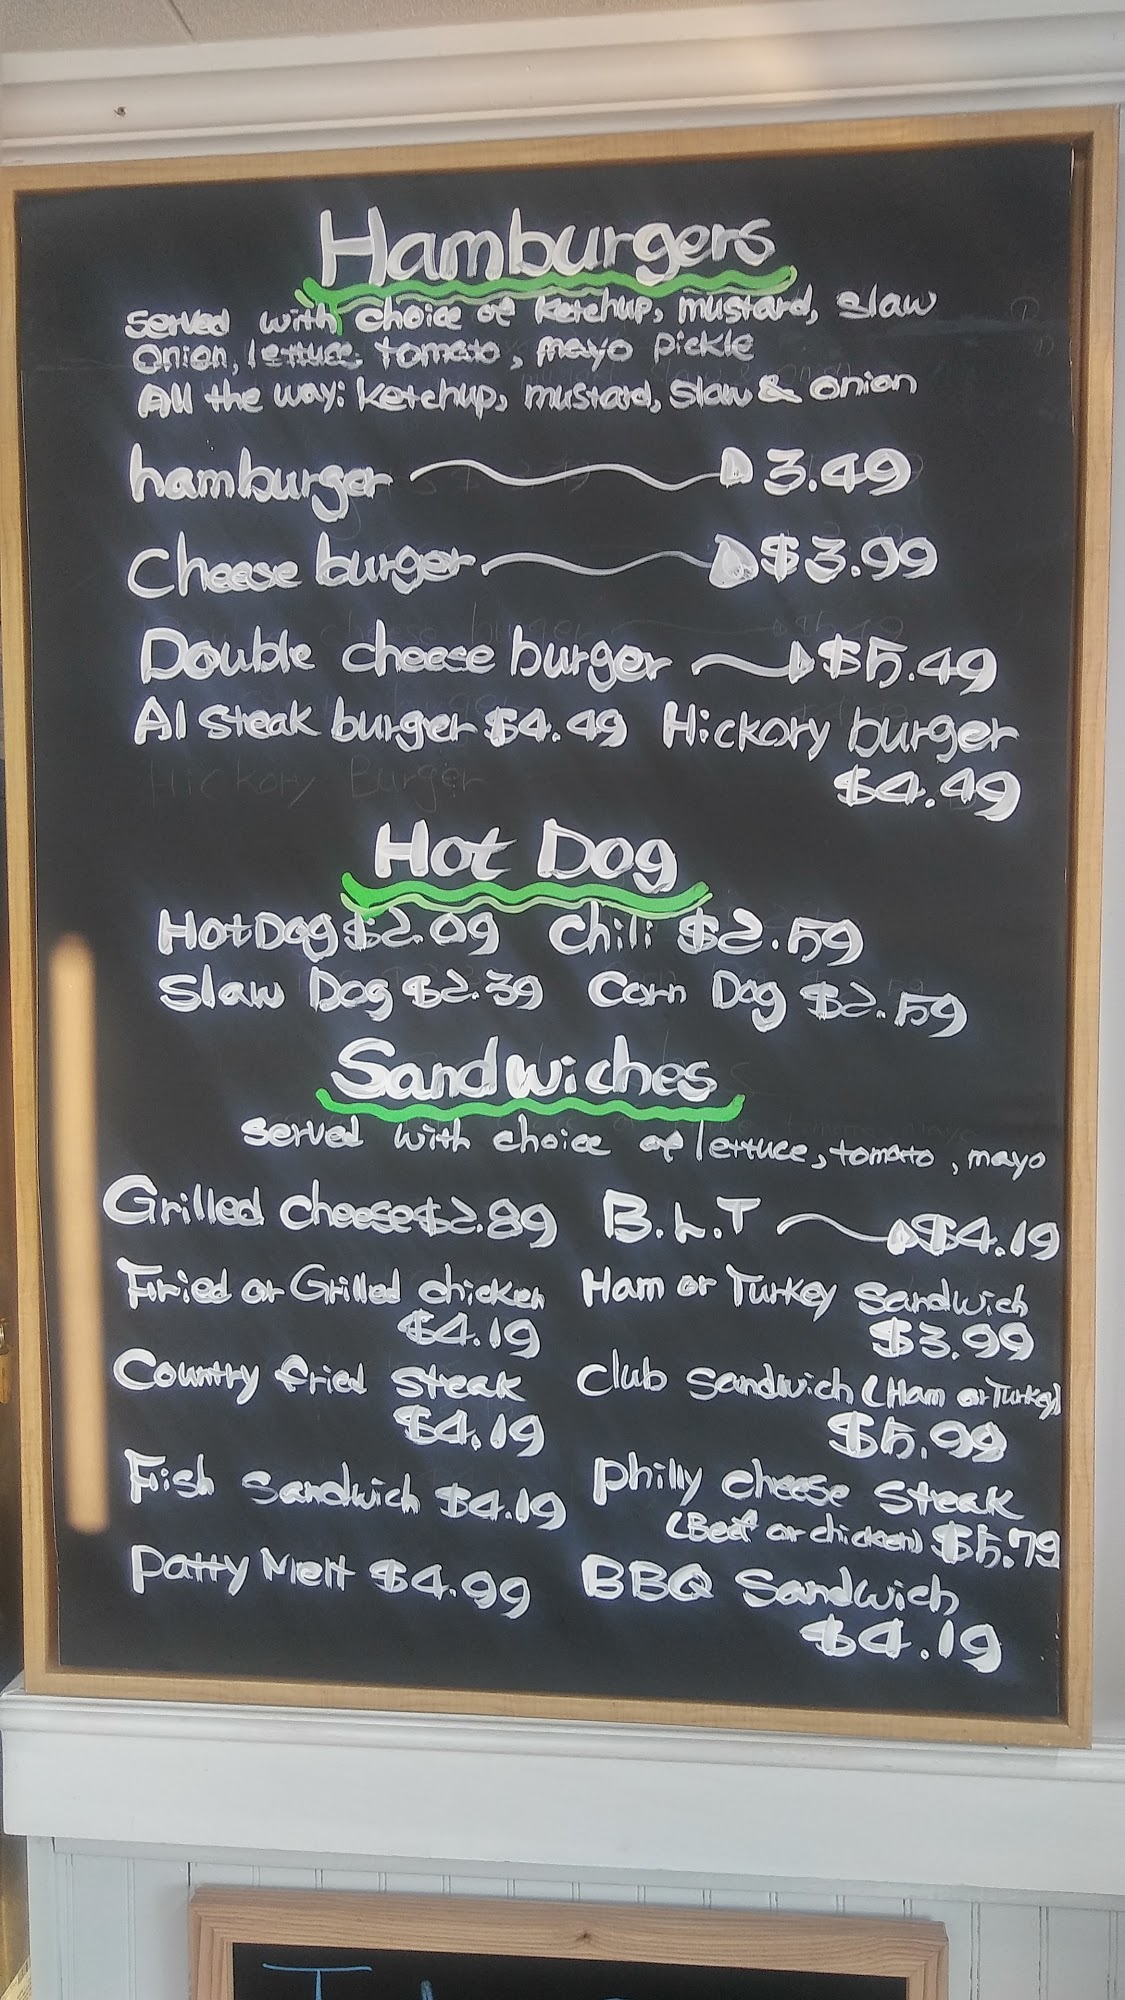 Hamburgers
Served with choice of ketchup, mustard, slaw
onion, lettuce, tomato, mayo pickle
All the way: ketchup, mustard, slaw & onion
hamburger 3.49
Cheese burger $3.99
Double cheese burger $5.49
A1 steak burger $4.49 Hickory burger
$4.49
Hickory Burger
Hot Dog
Hot Dog $2.09 Chili $2.59
Slaw Dog $2.39 Corn Dog $2.59
Sandwiches
Served with choice of lettuce, tomato, mayo
Grilled cheese $2.89 B.L.T $4.19
Fried or Grilled chicken Ham or Turkey Sandwich
$4.19 $3.99
Country fried steak Club Sandwich (Ham or Turkey)
$4.19 $5.99
Fish Sandwich $4.19 Philly cheese steak
(Beef or chicken) $5.79
Patty Melt $4.99 BBQ Sandwich
$4.19